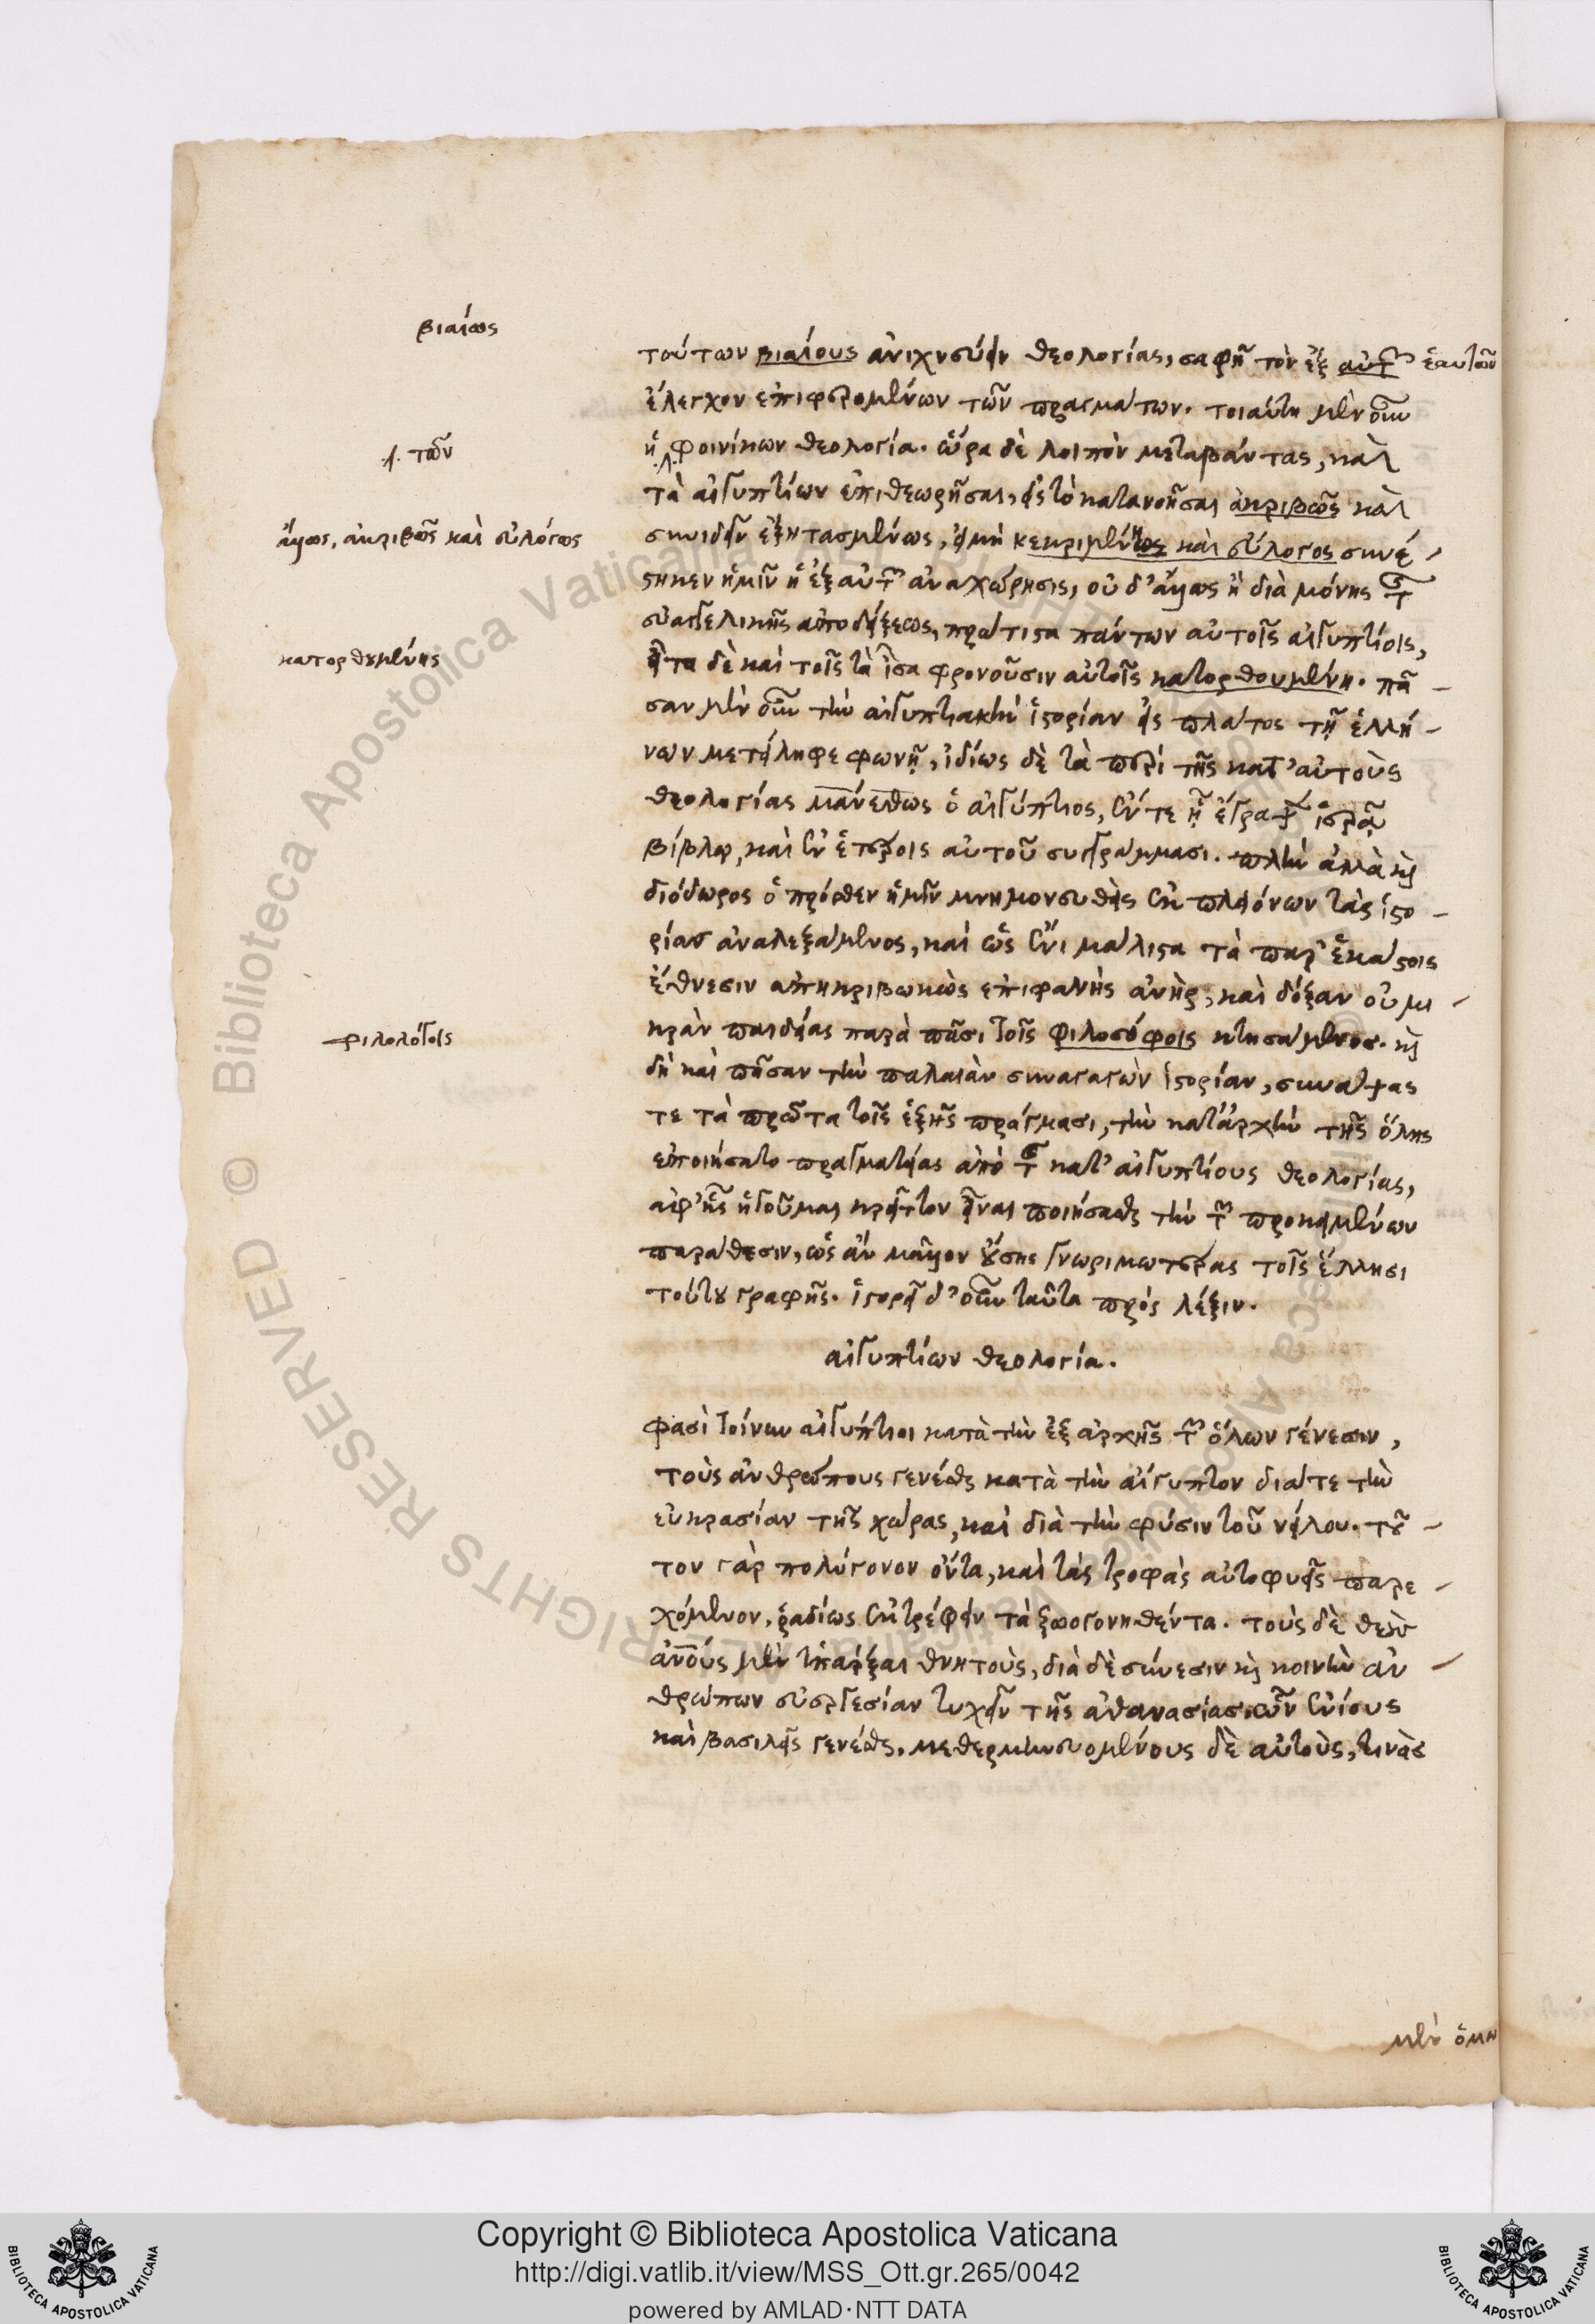 βιαίως
τούτων βιαίους ἀνιχνεύειν θεολογίας, σαφῆ τὸν ἐξ αὐτῶν ἑαυτῶν
ἔλεγχον ἐπιφερομένων τῶν πραγμάτων. τοιαύτη μὲν οὖν
ἡ φοινίκων θεολογία. ὥρα δὲ λοιπὸν μεταβάντας, καὶ
.λ. τῶν
τὰ αἰγυπτίων ἐπιθεωρῆσαι, εἰς τὸ κατανοῆσαι ἀκριβῶς καὶ
ἄλλως, ἀκριβῶς καὶ εὐλόγως
συνιδεῖν ἐξητασμένως, εἰ μὴ κεκριμένως καὶ εὔλογος συνέ-
στηκεν ἡμῖν ἡ ἐξ αὐτῶν ἀναχώρησις, οὐδ' ἄλλως ἢ διὰ μόνης τῆς
εὐαγγελικῆς ἀποδείξεως, πρώτιστα πάντων αὐτοῖς αἰγυπτίοις,
κατορθουμένης
εἶτα δὲ καὶ τοῖς τὰ ἴσα φρονοῦσιν αὐτοῖς κατορθουμένη. πᾶ-
σαν μὲν οὖν τὴν αἰγυπτιακὴν ἱστορίαν εἰς πλάτος τῇ ἑλλή-
νων μετείληφε φωνῇ, ἰδίως δὲ τὰ περὶ τῆς κατ' αὐτοὺς
θεολογίας μανέθως ὁ αἰγύπτιος, ἔν τε ᾗ ἔγραψεν ἱερᾷ
βίβλῳ, καὶ ἐν ἑτέροις αὐτοῦ συγγράμμασι. πλὴν ἀλλὰ καὶ
διόδωρος ὁ πρόσθεν ἡμῖν μνημονευθεὶς ἐκ πλειόνων τὰς ἱστο-
ρίας ἀναλεξάμενος, καὶ ὡς ἔνι μάλιστα τὰ παρ' ἑκάστοις
ἔθνεσιν ἀπηκριβωκὼς ἐπιφανὴς ἀνὴρ, καὶ δόξαν οὐ μι-
φιλολόγοις
κρὰν παιδείας παρὰ πᾶσι τοῖς φιλοσόφοις κτησάμενος. καὶ
δὴ καὶ πᾶσαν τὴν παλαιὰν συναγαγὼν ἱστορίαν, συνάψας
τε τὰ πρῶτα τοῖς ἑξῆς πράγμασι, τὴν κατάρχὴν τῆς ὅλης
ἐποιήσατο πραγματείας ἀπὸ τῆς κατ' αἰγυπτίους θεολογίας,
ἀφ' ἧς ἡγοῦμαι κρεῖττον εἶναι ποιήσασθαι τὴν τῶν προκειμένων
παράθεσιν, ὡς ἂν μᾶλλον οὔσης γνωριμωτέρας τοῖς ἕλλησι
τούτου γραφῆς. ἱστορεῖ δ' οὖν ταῦτα πρὸς λέξιν.
αἰγυπτίων θεολογία.
φασὶ τοίνυν αἰγύπτιοι κατὰ τὴν ἐξ ἀρχῆς τῶν ὅλων γένεσιν,
τοὺς ἀνθρώπους γενέσθαι κατὰ τὴν αἴγυπτον διά τε τὴν
εὐκρασίαν τῆς χώρας, καὶ διὰ τὴν φύσιν τοῦ νείλου. τοῦ-
τον γὰρ πολύγονον ὄντα, καὶ τὰς τροφὰς αὐτοφυεῖς παρε-
χόμενον, ῥαδίως ἐκτρέφειν τὰ ζωογονηθέντα. τοὺς δὲ θεοὺς
ἀνους μὲν ὑπάρξαι θνητοὺς, διὰ δὲ σύνεσιν καὶ κοινὴν ἀν-
θρώπων εὐεργεσίαν τυχεῖν τῆς ἀθανασίας. ὧν ἐνίους
καὶ βασιλεῖς γενέσθαι. μεθερμηνευομένους δὲ αὐτοὺς, τινὰς
μὲν ὁμω
Copyright © Biblioteca Apostolica Vaticana
http://digi.vatlib.it/view/MSS_Ott.gr.265/0042
powered by AMLAD·NTT DATA